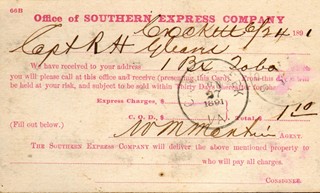 66B
Office of SOUTHERN EXPRESS COMPANY
Crockett 6/24 1891
Capt R H
We have received to your address 1 Bx Tobo
you will please call at this office and receive (presenting this Card). From this day it will
be held at your risk, and subject to be stored within Thirty Days thereafter for charges.
Express Charges, $
27
1891
C. O. D., $ Total $ 1.10
(Fill out below.)
AGENT.
THE SOUTHERN EXPRESS COMPANY will deliver the above mentioned property to
who will pay all charges.
CONSIGNEE.